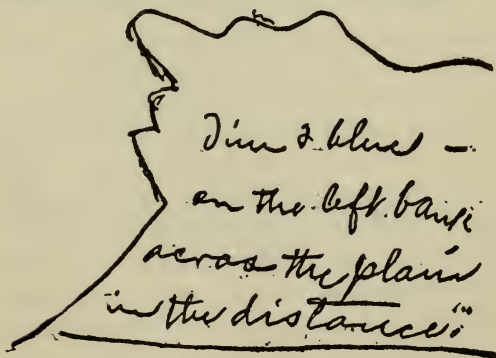 Dim & blue —
on the left bank
across the plain
"in the distance."